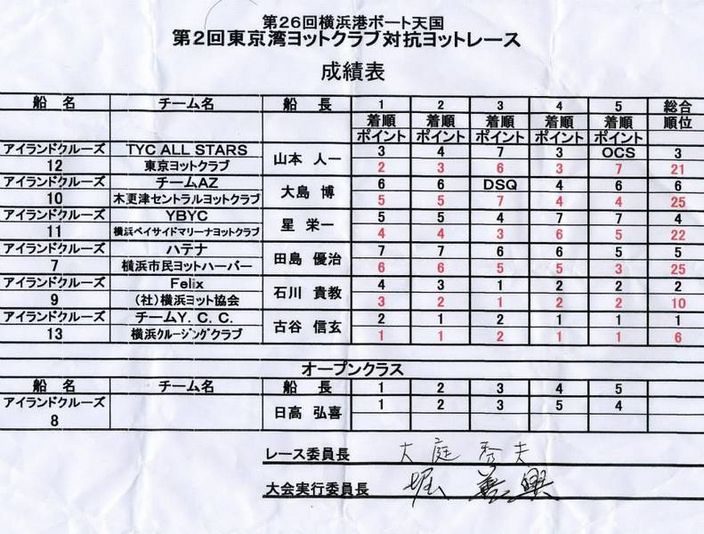 第26回横浜港ボート天国
第2回東京湾ヨットクラブ対抗ヨットレース
成績表
船 名 チーム名 船 長 1 2 3 4 5 総合
着順 着順 着順 着順 着順 順位
ポイント ポイント ポイント ポイント ポイント
アイランドクルーズ TYC ALL STARS 山本 人一 3 4 7 3 OCS 3
12 東京ヨットクラブ 2 3 6 3 7 21
アイランドクルーズ チームAZ 大島 博 6 6 DSQ 4 6 6
10 木更津セントラルヨットクラブ 5 5 7 4 4 25
アイランドクルーズ YBYC 星 栄一 5 5 4 7 7 4
11 横浜ベイサイドマリーナヨットクラブ 4 4 3 6 5 22
アイランドクルーズ ハテナ 田島 優治 7 7 6 6 5 5
7 横浜市民ヨットハーバー 6 6 5 5 3 25
アイランドクルーズ Felix 石川 貴教 4 3 1 2 2 2
9 (社)横浜ヨット協会 3 2 1 2 2 10
アイランドクルーズ チームY. C. C. 古谷 信玄 2 1 2 1 1 1
13 横浜クルージングクラブ 1 1 2 1 1 6
オープンクラス
船 名 チーム名 船 長 1 2 3 4 5
アイランドクルーズ 日高 弘喜 1 2 3 5 4
8
レース委員長 大庭 秀夫
大会実行委員長 堀 善興